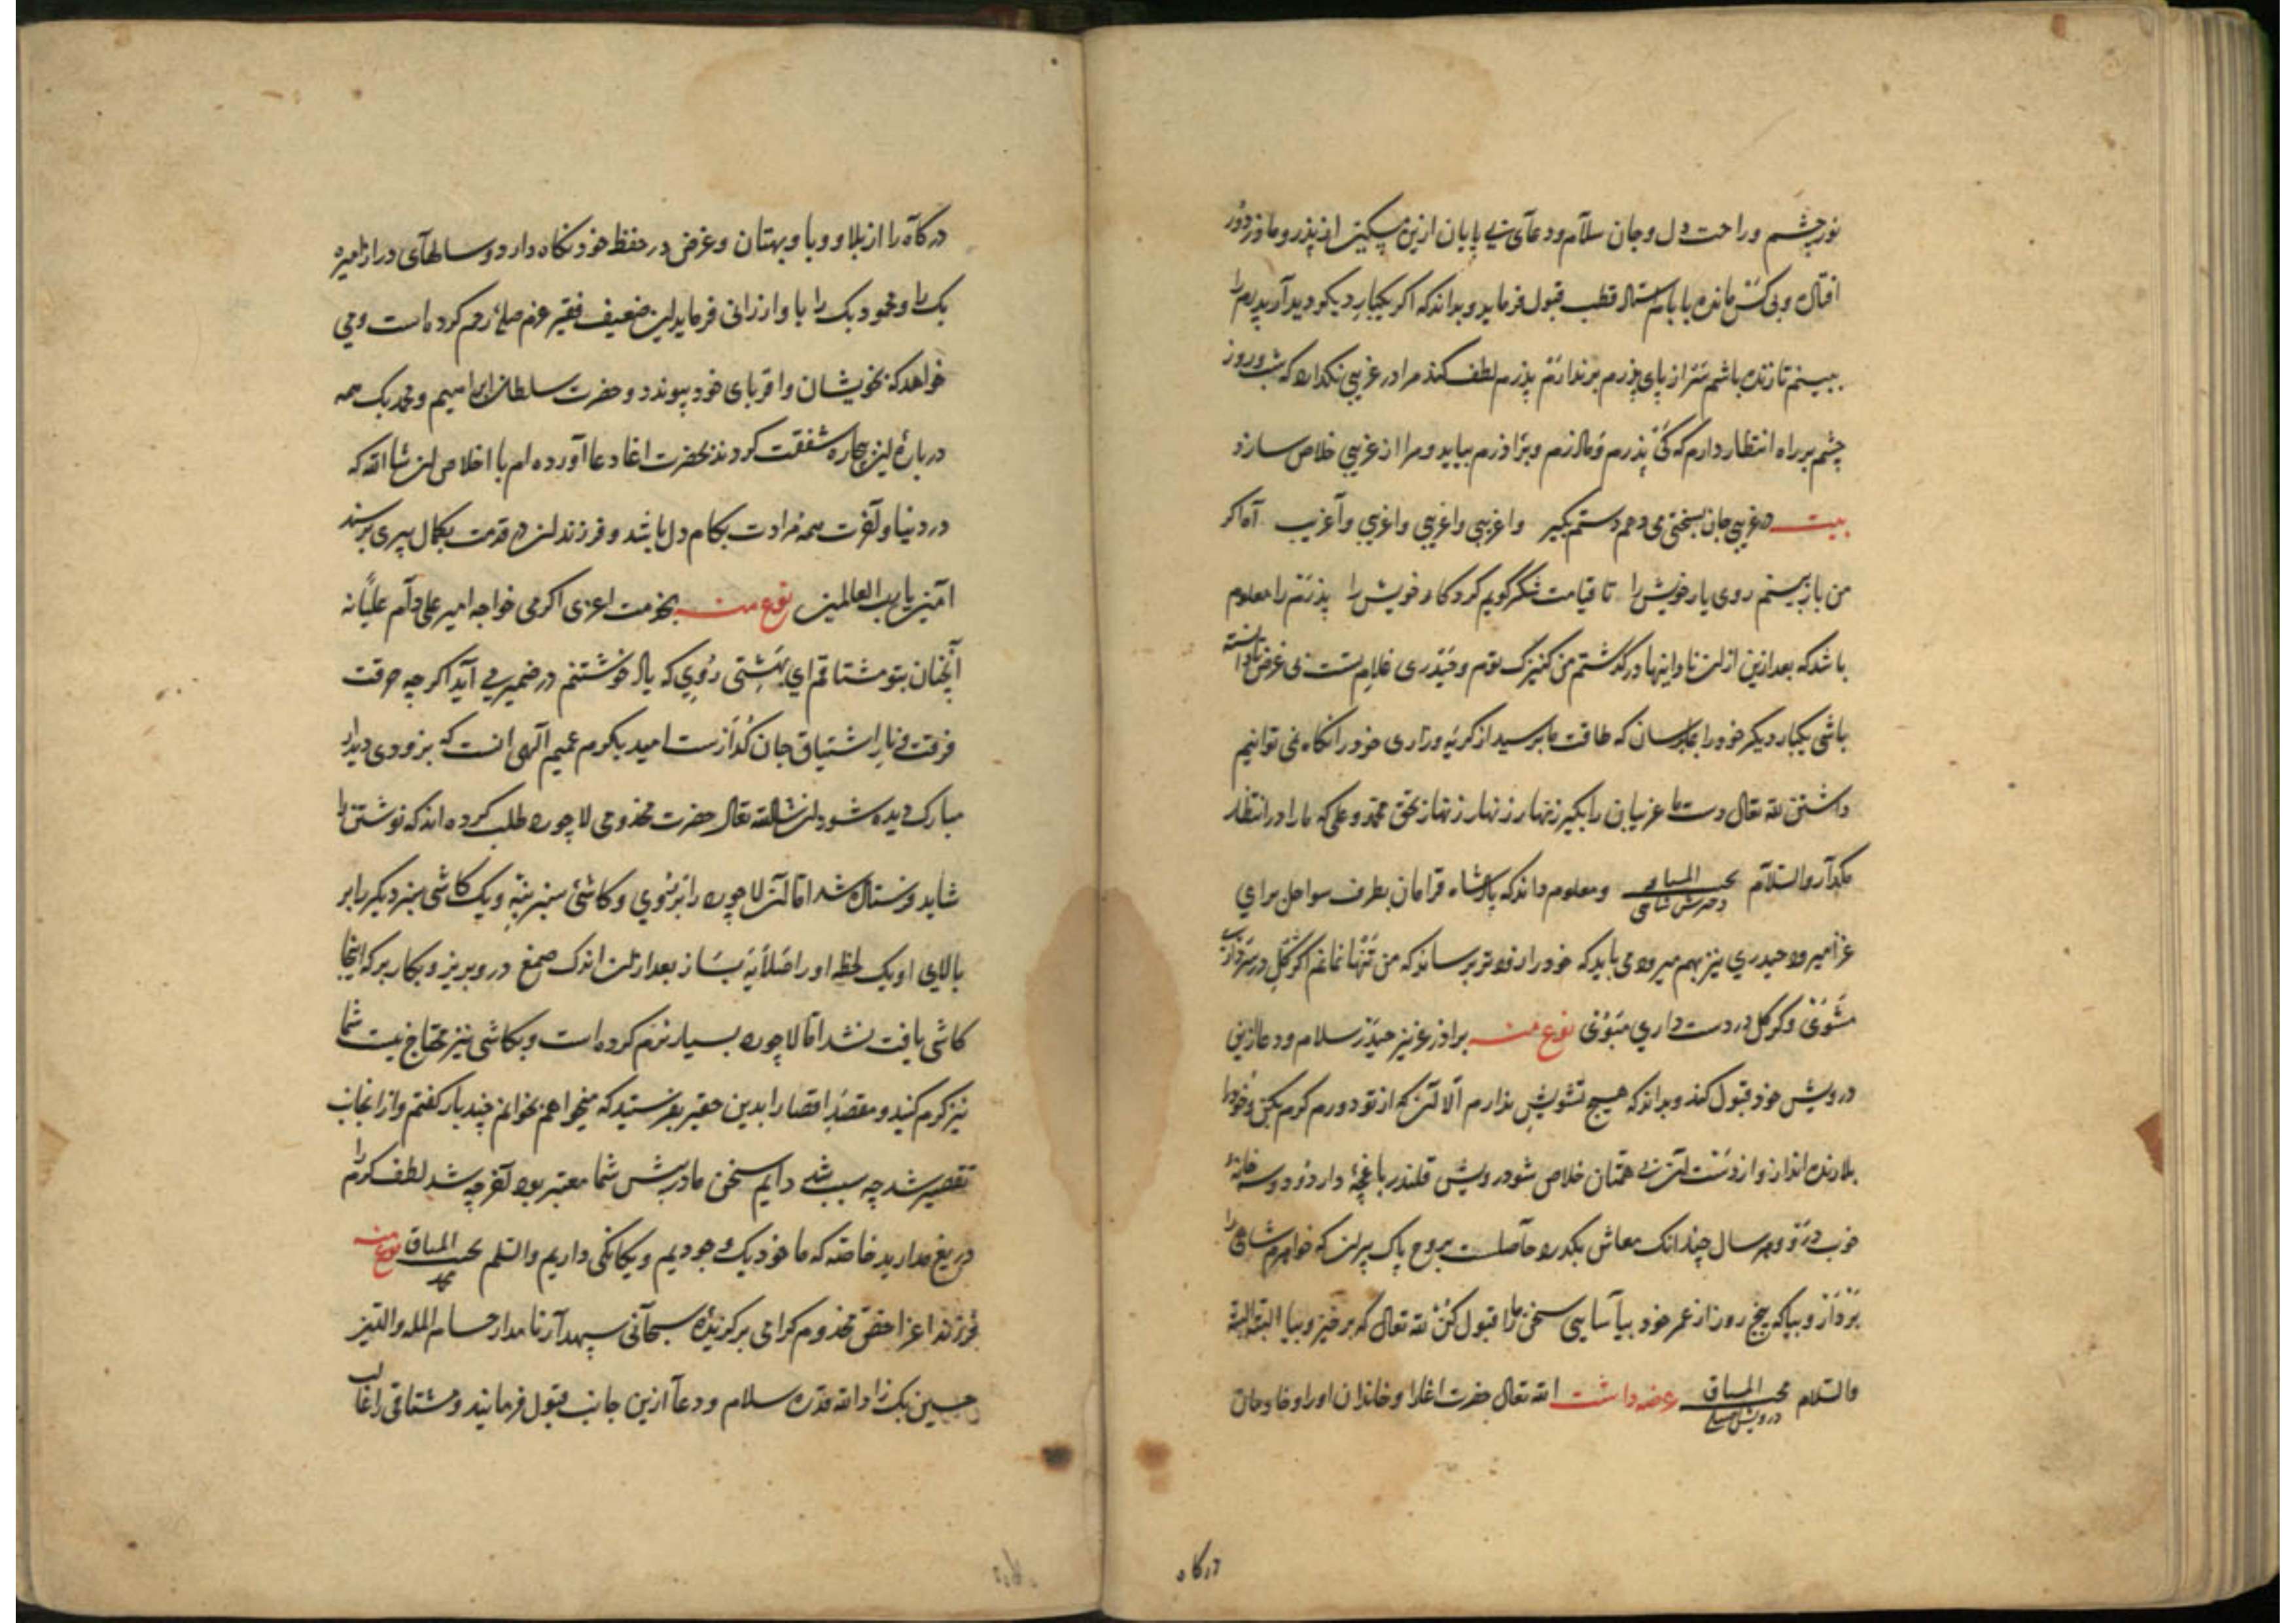 نورچشم و راحت دل و جان سلام و دعای بی پایان ازین مسکین از پذر و ماذر دور
افتاده و بی کس مانده بابا قطب قبول فرماید و بداند که اکر یکبار دیکر دیدار پدرم را
ببینم تا زنده باشم سر از پای پذرم برندارم پذرم لطف کند مرا در غریبی نکذارد که شب و روز
چشم بر راه انتظار دارم که کی پذرم و ماذرم و براذرم بیاید و مرا از غریبی خلاص سازد
بیت در غریبی جان بسختی می دهم دستم بکیر واغریبی واغریبی واغریبی واغریب آه اکر
من بازبینم روی یار خویش را تا قیامت شکر کویم کردکار خویش را پذرتم را معلوم
باشد که بعد ازین از ان ناز و اینها درکذشتم من کنیزک توم و حیدری غلام تست بی غرض
باشی یکبار دیکر خود را بما برسان که طاقت ما برسید از کریه و زاری خود را نکاه نمی توانیم
داشتن لله تعالی دست ما غریبان را بکیر زنهار زنهار زنهار بحق محمد و علی که ما را در انتظار
مکذار والسلام ومعلوم داند که پادشاه قرامان بطرف سواحل برای
غزا میرود حیدری نیز بهم میرود می باید که خود را زودتر برساند که من تنها نمانم اکر کل در سر داری
مشوی وکر کل در دست داری مبوی نوع منه براذر عزیز حیدر سلام و دعا ازین
درویش خود قبول کند و بداند که هیچ تشویش ندارم الا آنک از تو دورم کرم بکن و خود را
بلارنده انداز و از دست این بی همتان خلاص شو درویش قلندر باغچه دارد و دو سه خانهٔ
خوب در و و هر سال چندانک معاش بکذرد حاصلست بروح پاک پیران که خواهرم شاهی را
بردار و بیا که پنج روز از عمر خود بیاسایی سخن ما را قبول کن لله تعالی که برخیز و بیا البته البته
والسلام محب المشتاق درویش عرضه داشت الله تعالی حضرت اغا را و خاندان او را و خادمان
درکاه
درکاه را از بلا و وبا و بهتان و غرض در حفظ خود نکاه دارد و سالهای دراز امیره
بک را و محمود بک را باو ارزانی فرماید این ضعیف فقیر عزم صلهٔ رحم کرده است و می
خواهد که بخویشان و اقربای خود پیوندد و حضرت سلطان ابراهیم و محمد بک همه
دربارهٔ این بیچاره شفقت کردند بحضرت اغا دعا آورده ام با اخلاص ان شا الله که
در دنیا و آخرت همه مرادت بکام دل باشد و فرزندان در قدمت بکمال پیری برسند
امین یا رب العالمین نوع منه بخدمت اعزی اکرمی خواجه امیر علی دام علیانه
آنچنان بتو مشتاقم ای بهشتی روی که یاد خوشتنم در ضمیر می آید اکرچه حرقت
فرقت و نار اشتیاق جان کدازست امید بکرم عمیم الهی انست که بزودی دیدار
مبارک دیده شود ان شا الله تعالی حضرت مخدومی لاجورد طلب کرده اند که نوشتن را
شاید فرستاده شد اما آن لاجورد را بزشوی و کاشئ سبز بنه و یک کاشی سبز دیکر برابر
بالای او یک لحظه او را صلایه بساز بعد از ان اندک صمغ درو بریز و بکار بر که اینجا
کاشی یافت نشد اما لاجورد بسیار نرم کرده است و بکاشی نیز محتاج نیست شما
نیز کرم کنید و مقصد اقصا را بدین حقیر بفرستید که میخواهم بخوانم چند بار کفتم و از انجانب
تقصیر شد چه سبب باشد دایم سخن ما در پیش شما معتبر بود آخر چه شد لطف کرم را
دریغ مدارید خاصه که ما خود یک وجودیم و یکانکی داریم والسلم محب المشتاق محمد نوع منه
فرزند اعز اخص مخدوم کرامی برکزیدهٔ سبحانی سپهدار نامدار حسام المله والدین
حسین بک زاد الله قدره سلام و دعا ازین جانب قبول فرمایند و مشتاقی را غالب